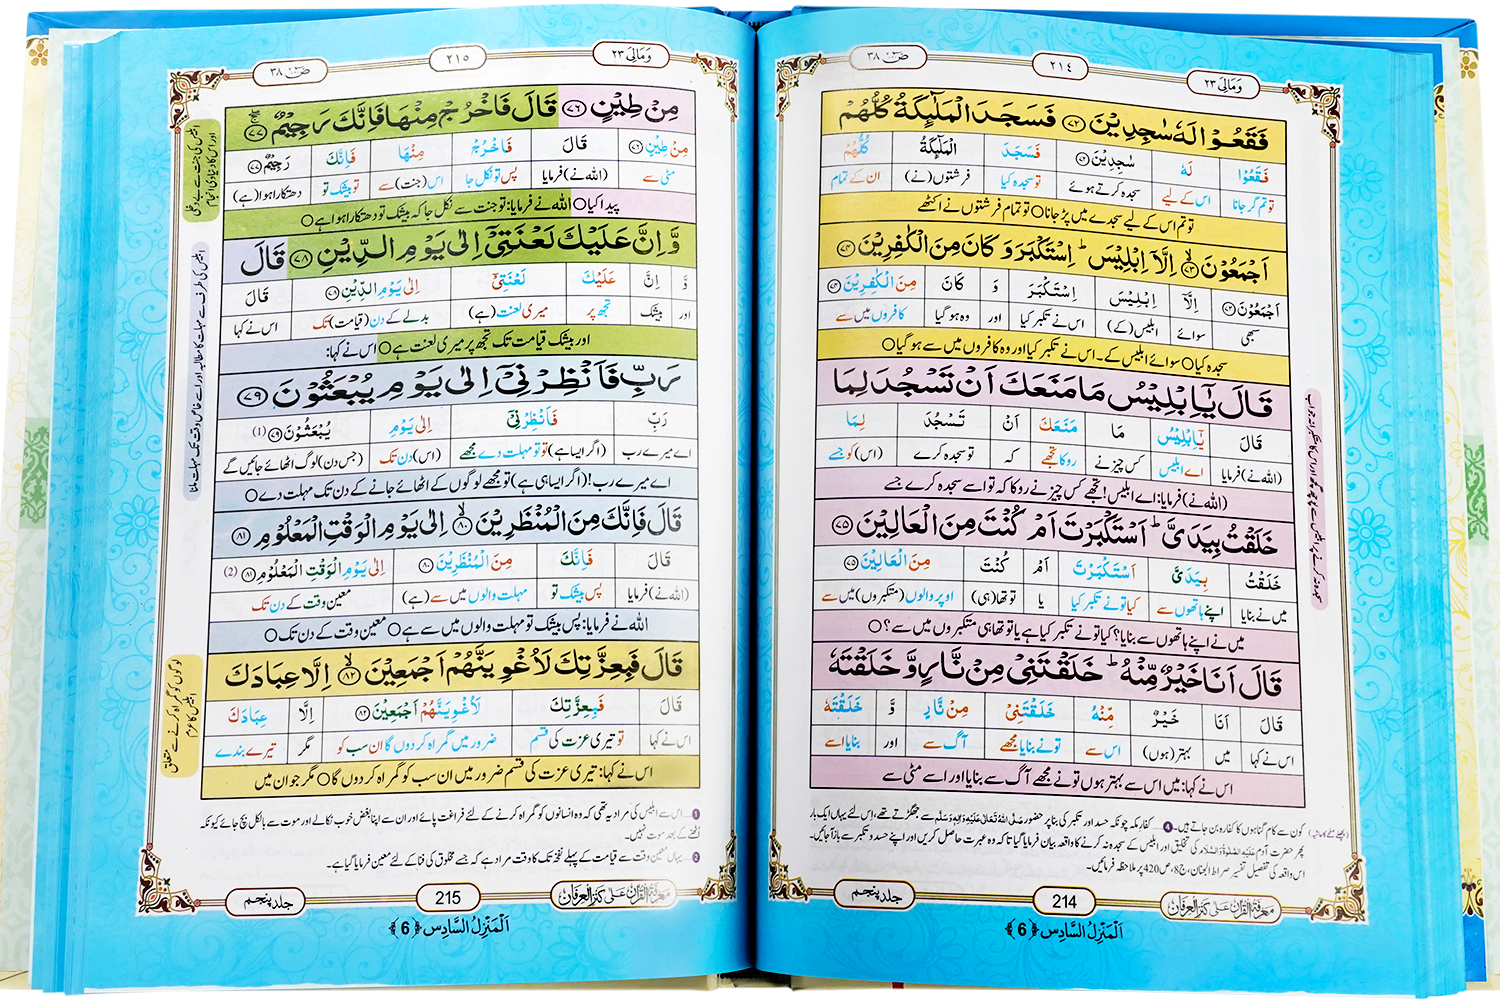 وَمَالِیَ ٢٣
٢١٤
صٓ ٣٨
فَقَعُوْا لَهٗ سٰجِدِیْنَ ﴿٧٢﴾ فَسَجَدَ الْمَلٰٓىٕكَةُ كُلُّهُمْ
فَقَعُوْا لَهٗ سٰجِدِیْنَ ﴿٧٢﴾ فَسَجَدَ الْمَلٰٓىٕكَةُ كُلُّهُمْ
تو تم گر جانا اس کے لیے سجدہ کرتے ہوئے تو سجدہ کیا فرشتوں (نے) ان کے تمام
تو تم اس کے لیے سجدے میں پڑ جانا○ تو تمام فرشتوں نے اکٹھے
اَجْمَعُوْنَ ﴿٧٣﴾ اِلَّاۤ اِبْلِیْسَؕ اِسْتَكْبَرَ وَ كَانَ مِنَ الْكٰفِرِیْنَ ﴿٧٤﴾
اَجْمَعُوْنَ ﴿٧٣﴾ اِلَّاۤ اِبْلِیْسَ اِسْتَكْبَرَ وَ كَانَ مِنَ الْكٰفِرِیْنَ ﴿٧٤﴾
سبھی سوائے ابلیس (کے) اس نے تکبر کیا اور وہ ہو گیا کافروں میں سے
سجدہ کیا○ سوائے ابلیس کے۔ اس نے تکبر کیا اور وہ کافروں میں سے ہو گیا○
قَالَ یٰۤاِبْلِیْسُ مَا مَنَعَكَ اَنْ تَسْجُدَ لِمَا
قَالَ یٰۤاِبْلِیْسُ مَا مَنَعَكَ اَنْ تَسْجُدَ لِمَا
(اللہ نے) فرمایا اے ابلیس کس چیز نے روکا تجھے کہ تو سجدہ کرے (اس) کو جسے
(اللہ نے) فرمایا: اے ابلیس! تجھے کس چیز نے روکا کہ تو اسے سجدہ کرے جسے
خَلَقْتُ بِیَدَیَّؕ اَسْتَكْبَرْتَ اَمْ كُنْتَ مِنَ الْعَالِیْنَ ﴿٧٥﴾
خَلَقْتُ بِیَدَیَّ اَسْتَكْبَرْتَ اَمْ كُنْتَ مِنَ الْعَالِیْنَ ﴿٧٥﴾
میں نے بنایا اپنے ہاتھوں سے کیا تو نے تکبر کیا یا تو تھا (ہی) اوپر والوں (متکبروں) میں سے
میں نے اپنے ہاتھوں سے بنایا؟ کیا تو نے تکبر کیا ہے یا تو تھا ہی متکبروں میں سے؟○
قَالَ اَنَا خَیْرٌ مِّنْهُؕ خَلَقْتَنِیْ مِنْ نَّارٍ وَّ خَلَقْتَهٗ
قَالَ اَنَا خَیْرٌ مِّنْهُ خَلَقْتَنِیْ مِنْ نَّارٍ وَّ خَلَقْتَهٗ
اس نے کہا میں بہتر (ہوں) اس سے تو نے بنایا مجھے آگ سے اور بنایا اسے
اس نے کہا: میں اس سے بہتر ہوں تو نے مجھے آگ سے بنایا اور اسے مٹی سے
کون سے کام گناہوں کا کفارہ بن جاتے ہیں۔ 8… کفار مکہ چونکہ حسد اور تکبر کی بنا پر حضور صَلَّی اللہُ تَعَالٰی عَلَیْہِ وَاٰلِہٖ وَسَلَّمَ سے جھگڑتے تھے، اس لئے یہاں ایک بار
پھر حضرت آدم عَلَیْہِ الصَّلٰوۃُ وَالسَّلَام کی تخلیق اور ابلیس کے سجدہ نہ کرنے کا واقعہ بیان فرمایا گیا تا کہ وہ عبرت حاصل کریں اور اپنے حسد و تکبر سے باز آ جائیں۔
اس واقعہ کی تفصیل تفسیر صراط الجنان، ج8، ص420 پر ملاحظہ فرمائیں۔
معرفۃ القرآن علی کنز العرفان
214
جلد پنجم
اَلْمَنْزِلُ السَّادِس ﴿6﴾
وَمَالِیَ ٢٣
٢١٥
صٓ ٣٨
مِنْ طِیْنٍ ﴿٧٦﴾ قَالَ فَاخْرُجْ مِنْهَا فَاِنَّكَ رَجِیْمٌ ﴿٧٧﴾
مِنْ طِیْنٍ ﴿٧٦﴾ قَالَ فَاخْرُجْ مِنْهَا فَاِنَّكَ رَجِیْمٌ ﴿٧٧﴾
مٹی سے (اللہ نے) فرمایا پس تو نکل جا اس (جنت) سے تو بیشک تو دھتکارا ہوا (ہے)
پیدا کیا○ اللہ نے فرمایا: تو جنت سے نکل جا کہ بیشک تو دھتکارا ہوا ہے○
وَّ اِنَّ عَلَیْكَ لَعْنَتِیْۤ اِلٰى یَوْمِ الدِّیْنِ ﴿٧٨﴾ قَالَ
وَّ اِنَّ عَلَیْكَ لَعْنَتِیْۤ اِلٰى یَوْمِ الدِّیْنِ ﴿٧٨﴾ قَالَ
اور بیشک تجھ پر میری لعنت (ہے) بدلے کے دن (قیامت) تک اس نے کہا
اور بیشک قیامت تک تجھ پر میری لعنت ہے○ اس نے کہا:
رَبِّ فَاَنْظِرْنِیْۤ اِلٰى یَوْمِ یُبْعَثُوْنَ ﴿٧٩﴾
رَبِّ فَاَنْظِرْنِیْۤ اِلٰى یَوْمِ یُبْعَثُوْنَ ﴿٧٩﴾ (1)
اے میرے رب (اگر ایسا ہے) تو تو مہلت دے مجھے (اس) دن تک (جس دن) لوگ اٹھائے جائیں گے
اے میرے رب! (اگر ایسا ہی ہے) تو مجھے لوگوں کے اٹھائے جانے کے دن تک مہلت دے○
قَالَ فَاِنَّكَ مِنَ الْمُنْظَرِیْنَ ﴿٨٠﴾ اِلٰى یَوْمِ الْوَقْتِ الْمَعْلُوْمِ ﴿٨١﴾
قَالَ فَاِنَّكَ مِنَ الْمُنْظَرِیْنَ ﴿٨٠﴾ اِلٰى یَوْمِ الْوَقْتِ الْمَعْلُوْمِ ﴿٨١﴾ (2)
(اللہ نے) فرمایا پس بیشک تو مہلت والوں میں سے (ہے) معین وقت کے دن تک
اللہ نے فرمایا: پس بیشک تو مہلت والوں میں سے ہے○ معین وقت کے دن تک○
قَالَ فَبِعِزَّتِكَ لَاُغْوِیَنَّهُمْ اَجْمَعِیْنَ ﴿٨٢﴾ اِلَّا عِبَادَكَ
قَالَ فَبِعِزَّتِكَ لَاُغْوِیَنَّهُمْ اَجْمَعِیْنَ ﴿٨٢﴾ اِلَّا عِبَادَكَ
اس نے کہا تو تیری عزت کی قسم ضرور میں گمراہ کر دوں گا ان سب کو مگر تیرے بندے
اس نے کہا: تیری عزت کی قسم ضرور میں ان سب کو گمراہ کر دوں گا○ مگر جو ان میں
1… اس سے ابلیس کی مراد یہ تھی کہ وہ انسانوں کو گمراہ کرنے کے لئے فراغت پائے اور ان سے اپنا بغض خوب نکالے اور موت سے بالکل بچ جائے کیونکہ
اٹھنے کے بعد موت نہیں۔
2… یہاں معین وقت سے قیامت کے پہلے نفخہ تک کا وقت مراد ہے کہ جسے مخلوق کی فنا کے لئے معین فرمایا گیا ہے۔
معرفۃ القرآن علی کنز العرفان
215
جلد پنجم
اَلْمَنْزِلُ السَّادِس ﴿6﴾